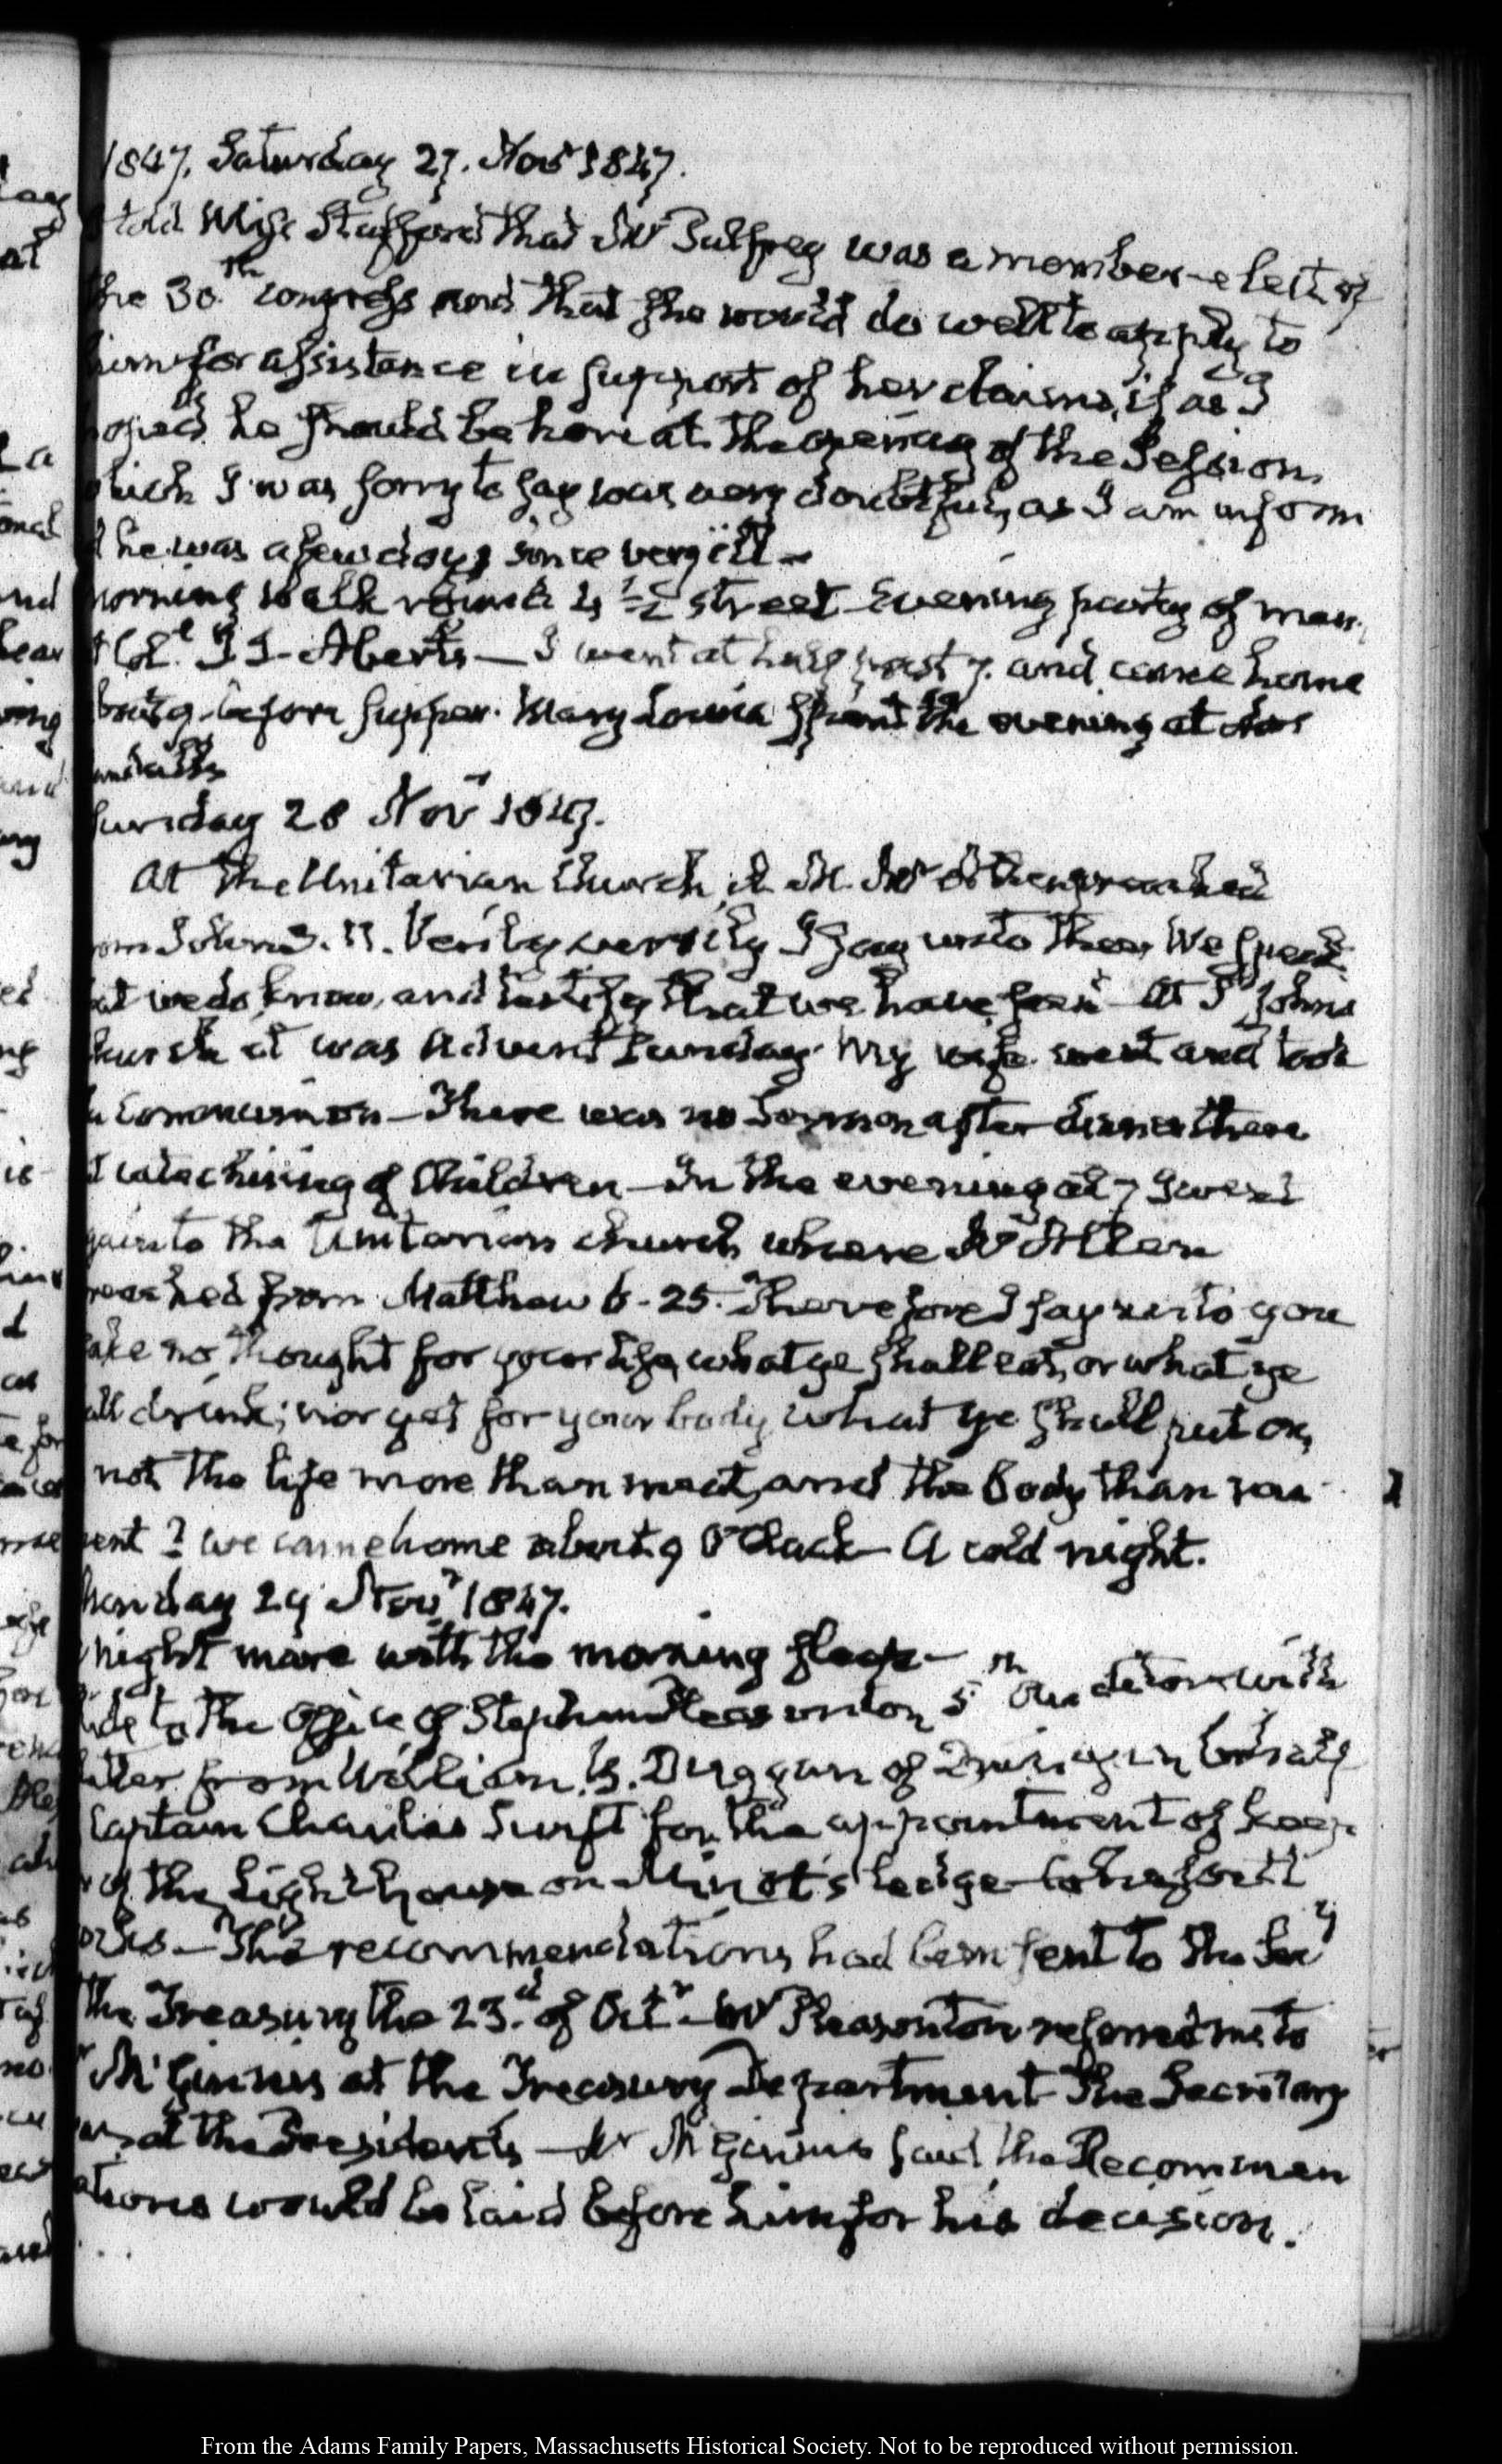 1847. Saturday 27. Novr 1847.
told Miss Stafford that Mr Palfrey was a member-elect of
the 30th Congress and that she would do well to apply to
him for assistance in support of her claims, if as I
he should be here at the opening of the Session,
which I was sorry to say was very doubtful, as I am inform
he was a few days since very ill—
morning walk round 4 1/2 street Evening party of men
Coll. J J. Abert's— I went at half past 7. and came home
before supper. Mary Louisa spent the evening at

Sunday 28 Novr 1847.
At the Unitarian Church, A. M. Mr Allen preached
John 3. 11. Verily verily I say unto thee, We speak
that we do know, and testify that we have seen— At St Johns
Church it was Advent Sunday. My wife went and took
Communion— There was no Sermon after dinner there
catechising of Children— In the evening at 7 I went
to the Unitarian church where Mr Allen
preached from Matthew 6-25. Therefore I say unto you
take no thought for your life, what ye shall eat, or what ye
shall drink; nor yet for your body what ye shall put on,
not the life more than meat, and the body than rai
ment? we came home about 9 O'Clock— A cold night.
Monday 29 Novr 1847.
night mare with the morning sleep—
to the Office of Stephen Pleasonton 5th Auditor with
letter from William B. Duggan of Quincy in behalf
Captain Charles Swift for the appointment of keep
of the Light house on Minot's ledge
The recommendations had been sent to the Secy
the Treasury the 23.d of Octr— Mr Pleasonton referred me to
McGinnis at the Treasury Department The Secretary
was at the Presidents— Mr McGinnis said the Recommen
ations would be laid before him for his decision.
From the Adams Family Papers, Massachusetts Historical Society. Not to be reproduced without permission.